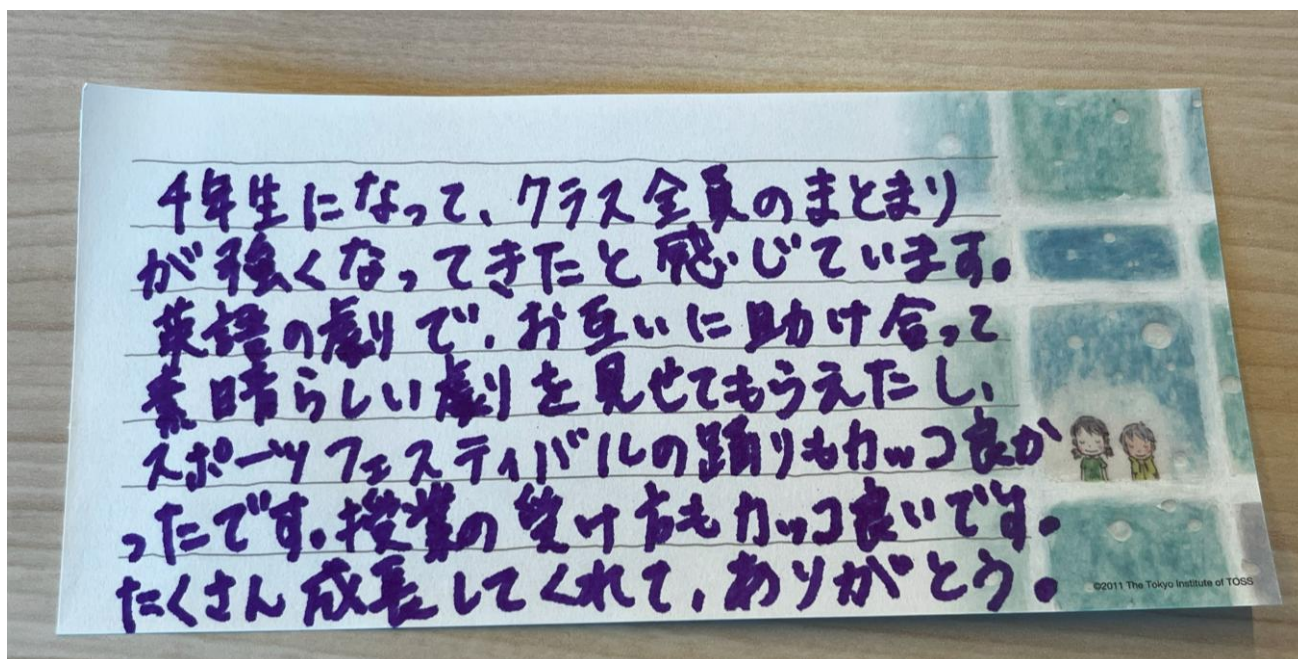 4年生になって、クラス全員のまとまり
が強くなってきたと感じています。
英語の劇で、お互いに助け合って
素晴らしい劇を見せてもらえたし、
スポーツフェスティバルの踊りもカッコ良か
ったです。授業の受け方もカッコ良いです。
たくさん成長してくれて、ありがとう。
©2011 The Tokyo Institute of TOSS